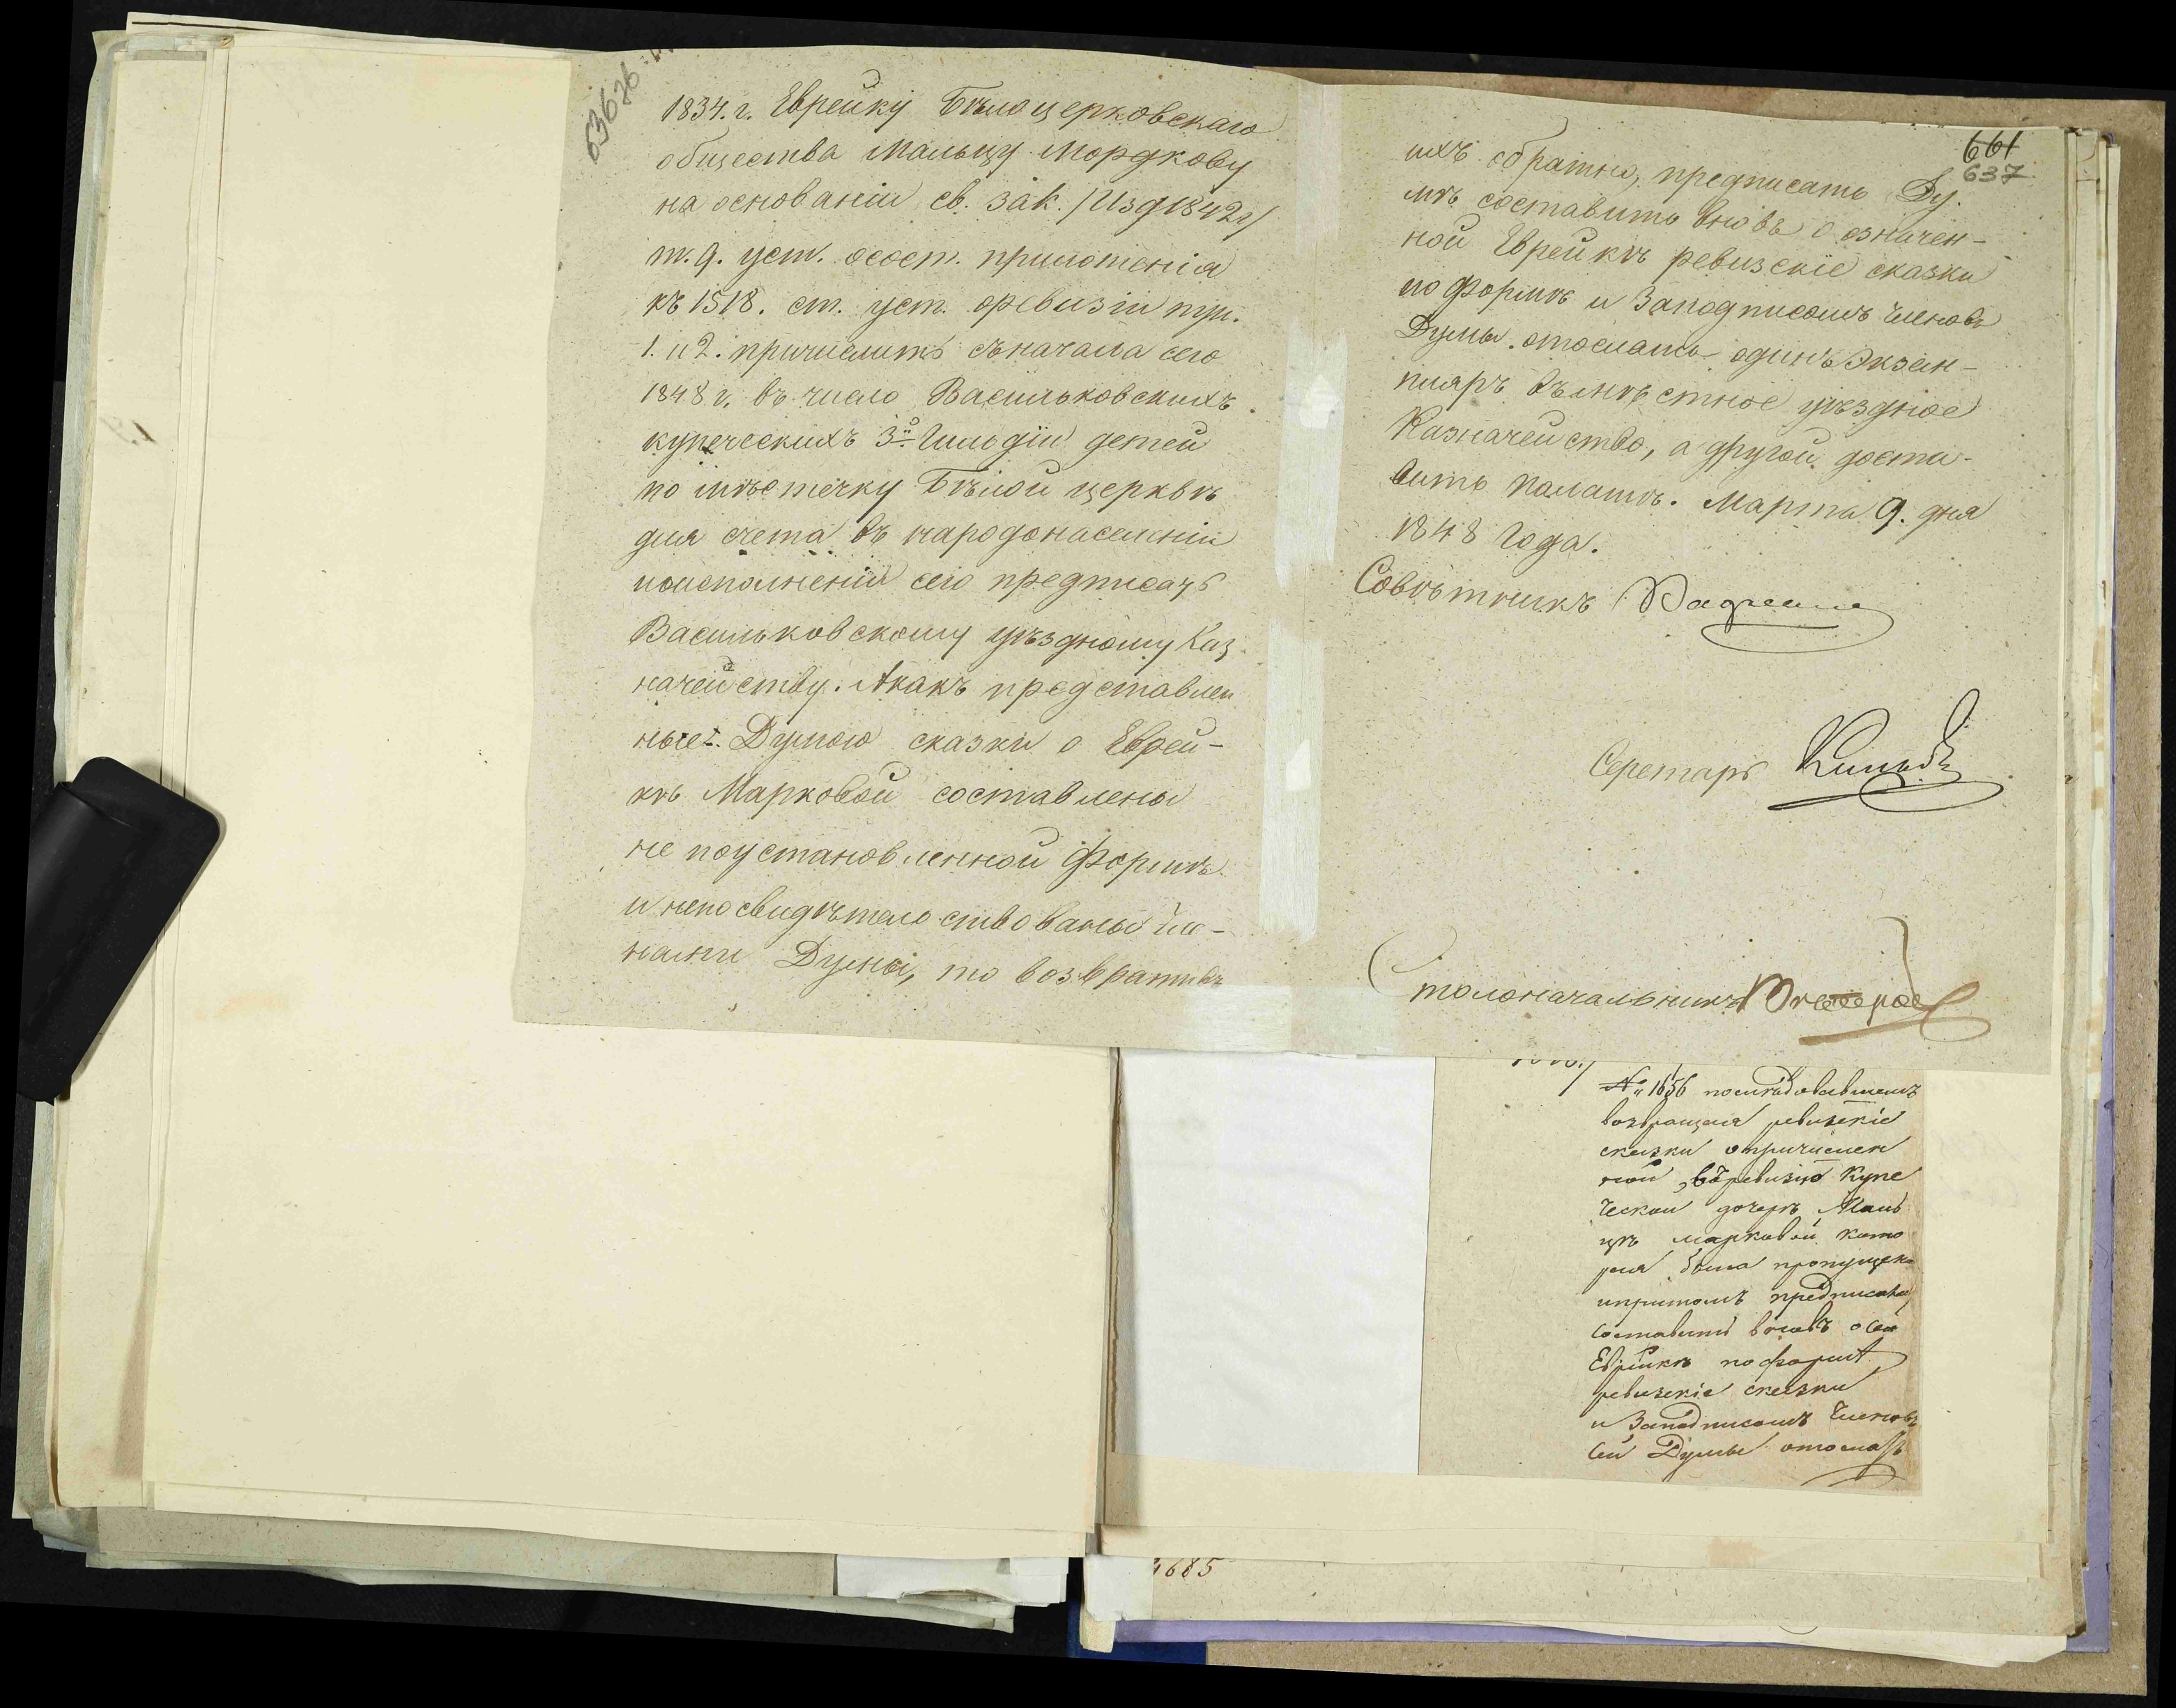 1834. г. Еврейку Бѣлоцерковскаго
общества Мальцу Мордкову
на основаніи св. зак. /Изд 1842 г/
т. 9. уст. осост. приложенія
къ 1518. ст. уст. оревизіи пун.
1. и 2. причислить съначала сего
1848 г. въ число Васильковскихъ
купеческихъ 3й Гильдіи детей
по мѣстечку Бѣлой церквѣ
для счета въ народонаселеніи
поисполненіи сего предписать
Васильковскому уѣздному Каз
начейству. Акакъ представлен
ные Думою сказки о Еврей-
кѣ Марковой составлены
не поустановленной Формѣ
и непосвидѣтельствованы Чле-
нами Думы, то возвративъ
661
637
ихъ обратно, предписать Ду.
мѣ составить вновь о означен-
ной Еврейкѣ ревизскіе сказки
по Формѣ и Заподписомъ Членовъ
Думы. отослать одинъ Экзем-
пляръ въмѣстное уѣздное
Казначейство, а другой доста-
вить палатѣ. Марта 9. дня
1848 года.
Совѣтникъ
Серетарь
Столоначальникъ
№ 1656 послѣдовавшемъ
возвращая ревизскіе
сказки опричислен
ной въревизію Купе
ческой дочерѣ Маль
цѣ марковой кото
рая была пропущен
ипритомъ предписано
составить вновь о сей
Еврейкѣ по формѣ
ревизскіе сказки
и Заподписомъ Членовъ
сей Думы отослать
1685